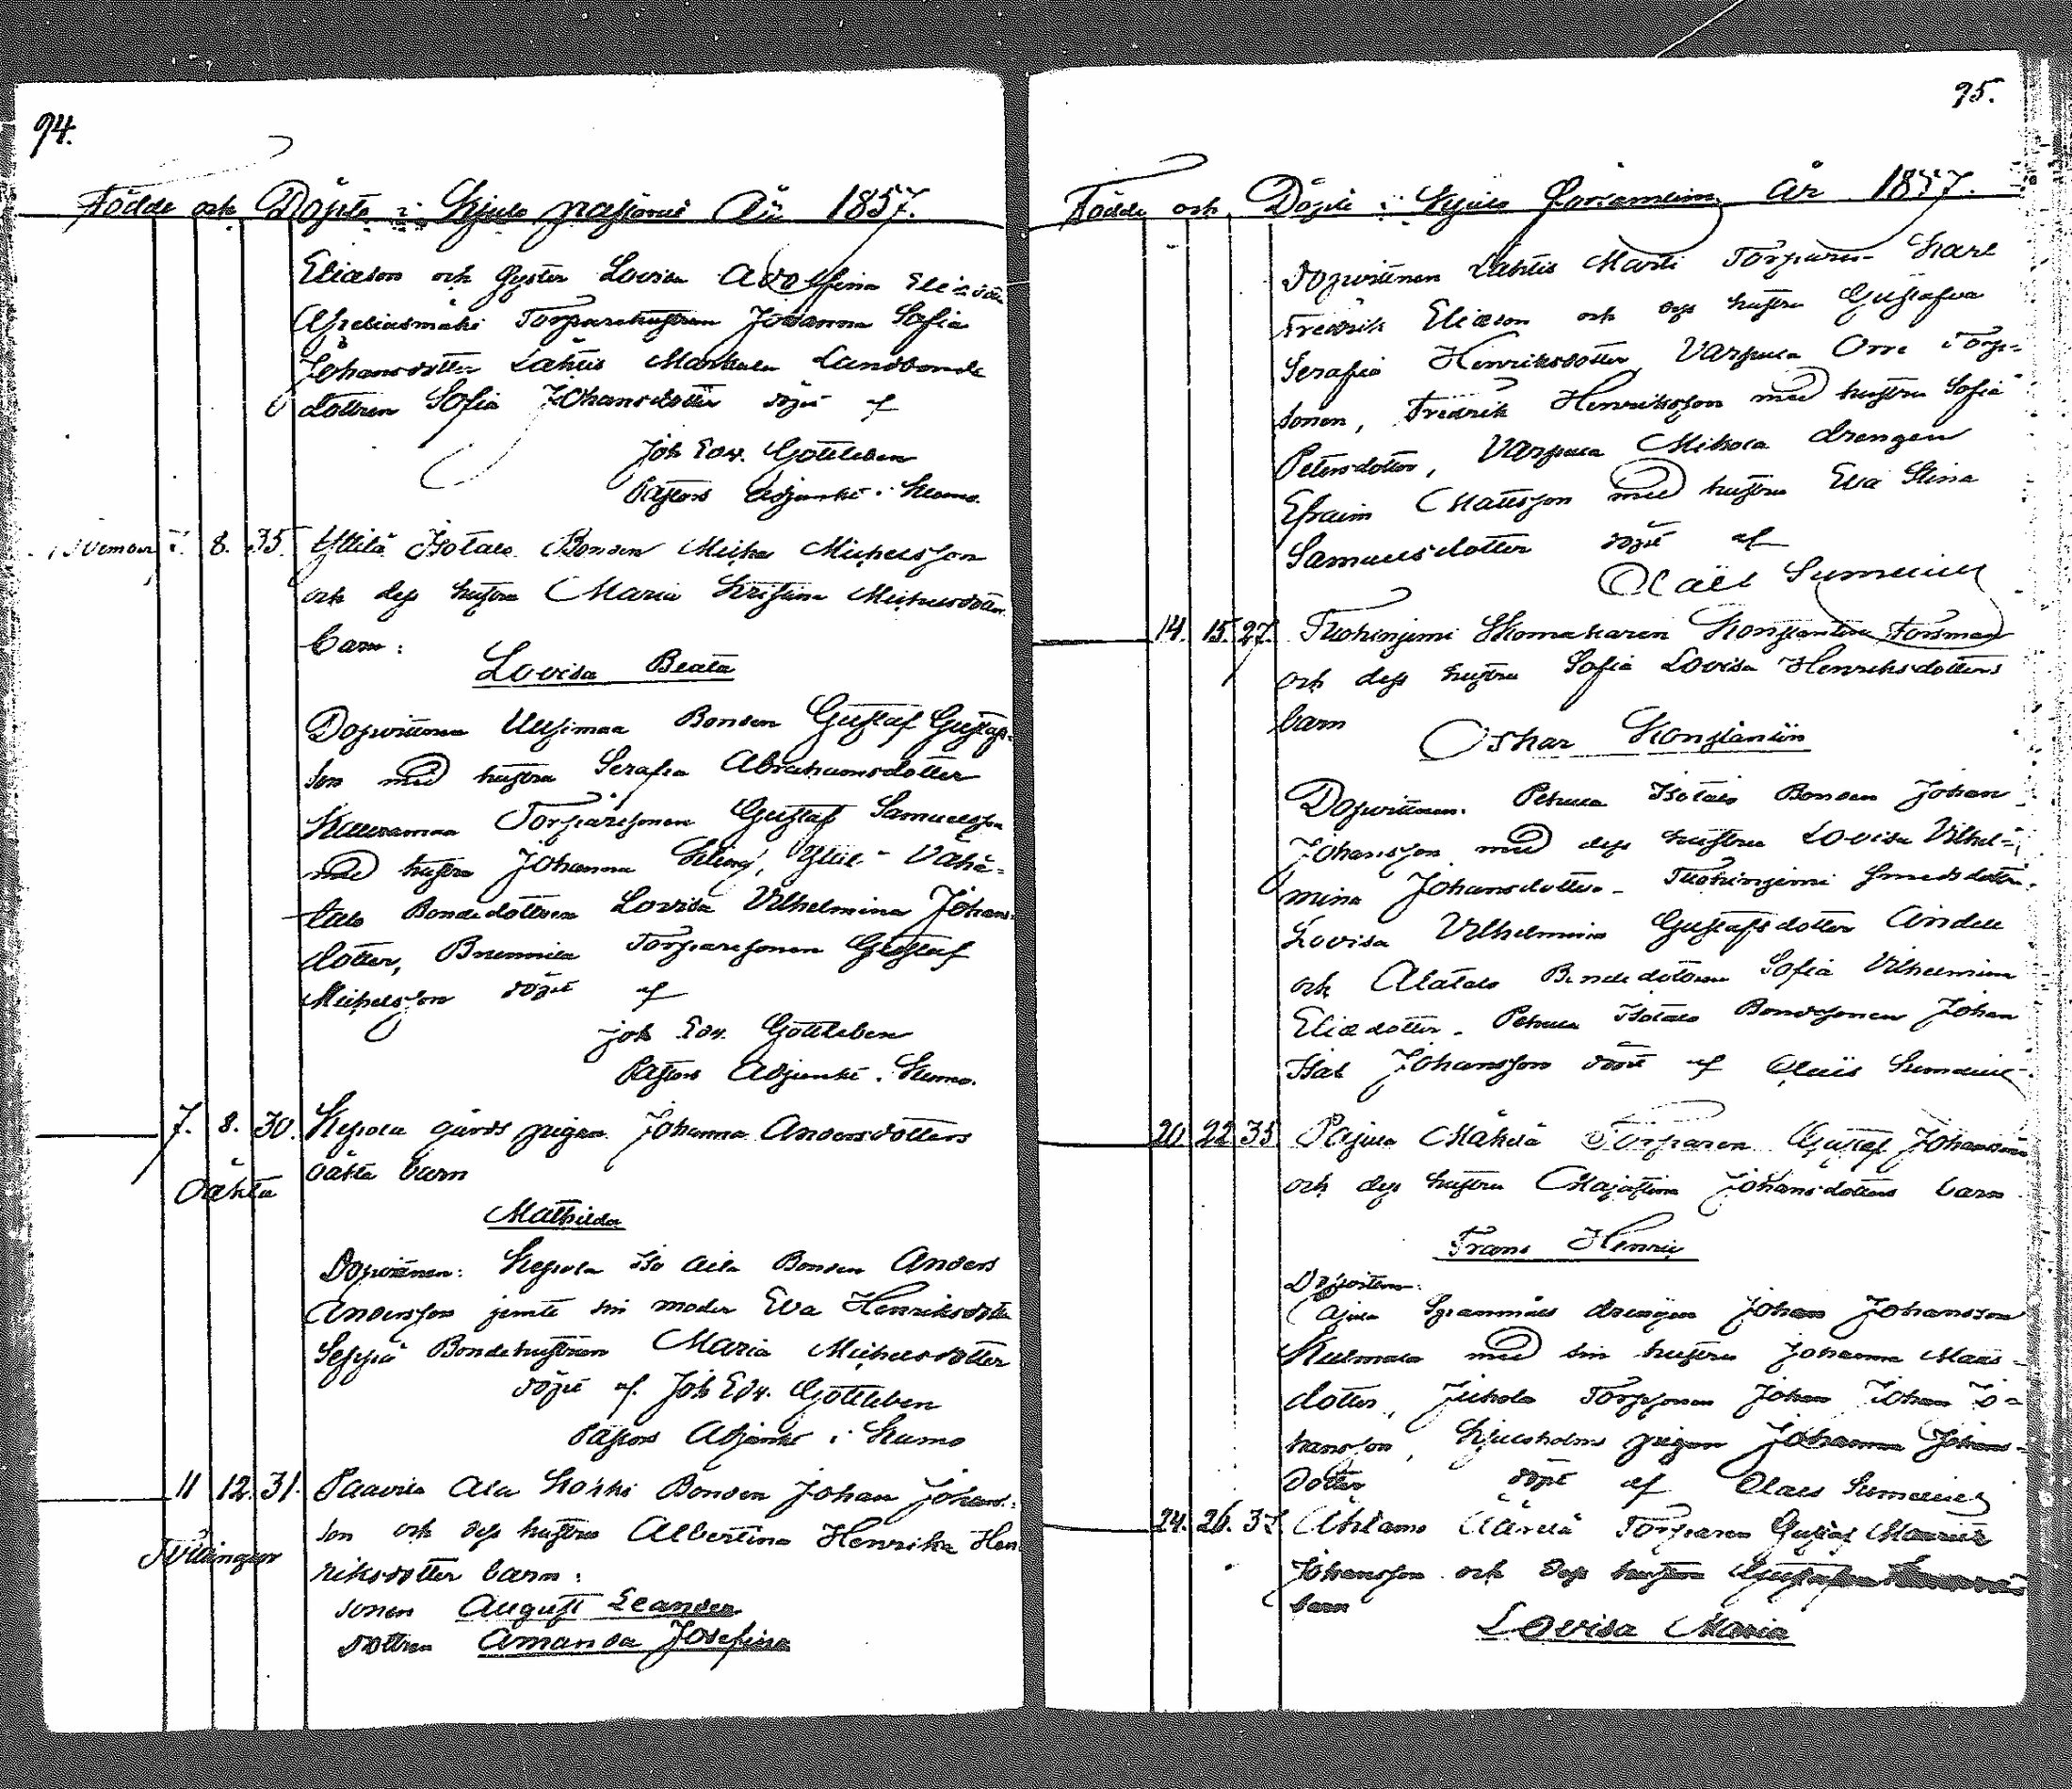 94.
Födde och Döpte i Kjulo pastorat År 1857.
Eliasson och Syster Lovisa Adolfina Eliædotter
Torparehustrun Johanna Sofia
Johansdotter Lahtis Markula Landbonde
dottren Sofia Johansdotter döpt af
Joh Edv. Gottleben
Pastors Adjunkt i Kumo.
November 7. 8. 35. Yttilä Isotalo Bonden Michel Michelsson
och dess hustru Maria Kristina Michelsdotters
barn:
Lovisa Beata
Dopvittnen Uusimaa Bonden Gustaf Gustafs-
son med hustru Serafia Abrahamsdotter
Torparesonen Gustaf Samuelsson
med hustru Johanna Yttil- Vähä-
talo Bondedottren Lovisa Vilhelmina Johans-
dotter, Torparesonen Gustaf
Michelsson döpt af
Joh Edv. Gottleben
Pastors Adjunkt i Kumo.
7. 8. 30. Kepola gårds pigan Johanna Andersdotters
Oäkta oäkta barn
Mathilda
Dopvittnen: Kepola Iso Aila Bonden Anders
Andersson jemte sin moder Eva Henriksdotter
Seppä Bondehustrun Maria Michelsdotter
döpt af Joh Edv. Gottleben
Pastors Adjunkt i Kumo
11 12. 31. Paavila Ala Bonden Johan Johans-
son och dess hustru Albertina Henrika Hen-
Tvillingar riksdotter barn:
sonen August Leander
dottren Amanda Josefina
95.
Födde och Döpte i Kjulo Församling år 1857.
Dopvittnen Lahtis Martti Torparen Karl
Fredrik Eliasson och dess hustru Gustafva
Serafia Henriksdotter, Varpula Orre Torp-
sonen, Fredrik Henriksson med hustru Sofia
Petersdotter, Varpula Mikola drengen
Efraim Mattsson med hustru Eva Stina
Samuelsdotter döpt af
Olaus Sumelius
14. 15. 27. Tuohiniemi Skomakaren Konstantin Forsman
och dess hustru Sofia Lovisa Henriksdotters
barn
Oskar Konstantin
Dopvittnen. Isotalo Bonden Johan
Johansson med dess hustru Lovisa Vilhel-
mina Johansdotter - Tuohiniemi Smedsdotter
Lovisa Vilhelmina Gustafsdotter
och Alatalo Bondedottren Sofia Vilhelmina
Eliædotter - Isotalo Bondesonen Johan
Isak Johansson döpt af Olaus Sumelius
20. 22. 35. Pajula Mäkelä Torparen Gustaf Johansson
och dess hustru Majastina Johansdotters barn
Frans Henric
Dopvittnen:
drengen Johan Johansson
Kulmala med sin hustru Johanna Matts-
dotter, Torpsonen Johan Johan Jo-
hansson, Kjuloholms pigan Johanna Johans-
dotter döpt af Olaus Sumelius
24. 26. Torparen Gustaf Maurits
Johansson och dess hustru
barn
Lovisa Maria